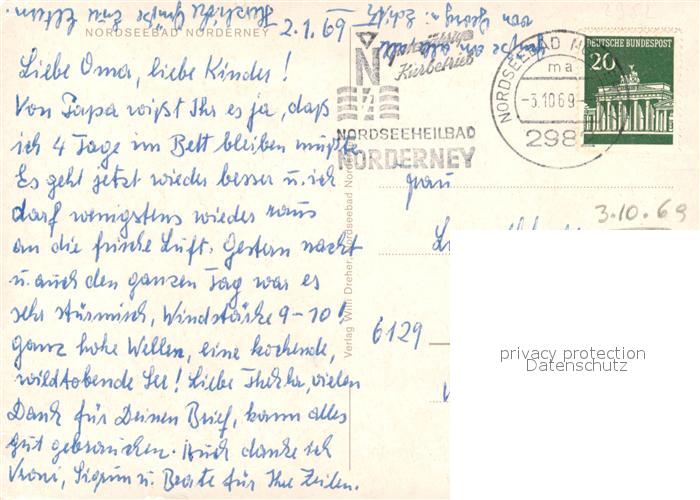 NORDSEEBAD NORDERNEY
2.1.69
Liebe Oma, liebe Kinder!
Von Papa wißt Ihr es ja, daß
ich 4 Tage im Bett bleiben mußte.
Es geht jetzt wieder besser u. ich
darf wenigstens wieder raus
an die frische Luft. Gestern nacht
u. auch den ganzen Tag war es
sehr stürmisch, Windstärke 9-10!
ganz hohe Wellen, eine kochende,
wildtobende See! Liebe Thekla, vielen
Dank für Deinen Brief, kann alles
gut gebrauchen. Auch danke ich
Vroni, Sigrun u. Beate für Ihre Zeilen.
Herzliche Grüße Eure Eltern.
Grüße an alle
von Georg u.
Verlag Willi Dreher, Nordseebad Norderney
Kurbetrieb
N
NORDSEEHEILBAD
NORDERNEY
NORDSEEBAD
-3.10.69-
2982
DEUTSCHE BUNDESPOST
20
3.10.69
6129
privacy protection
Datenschutz